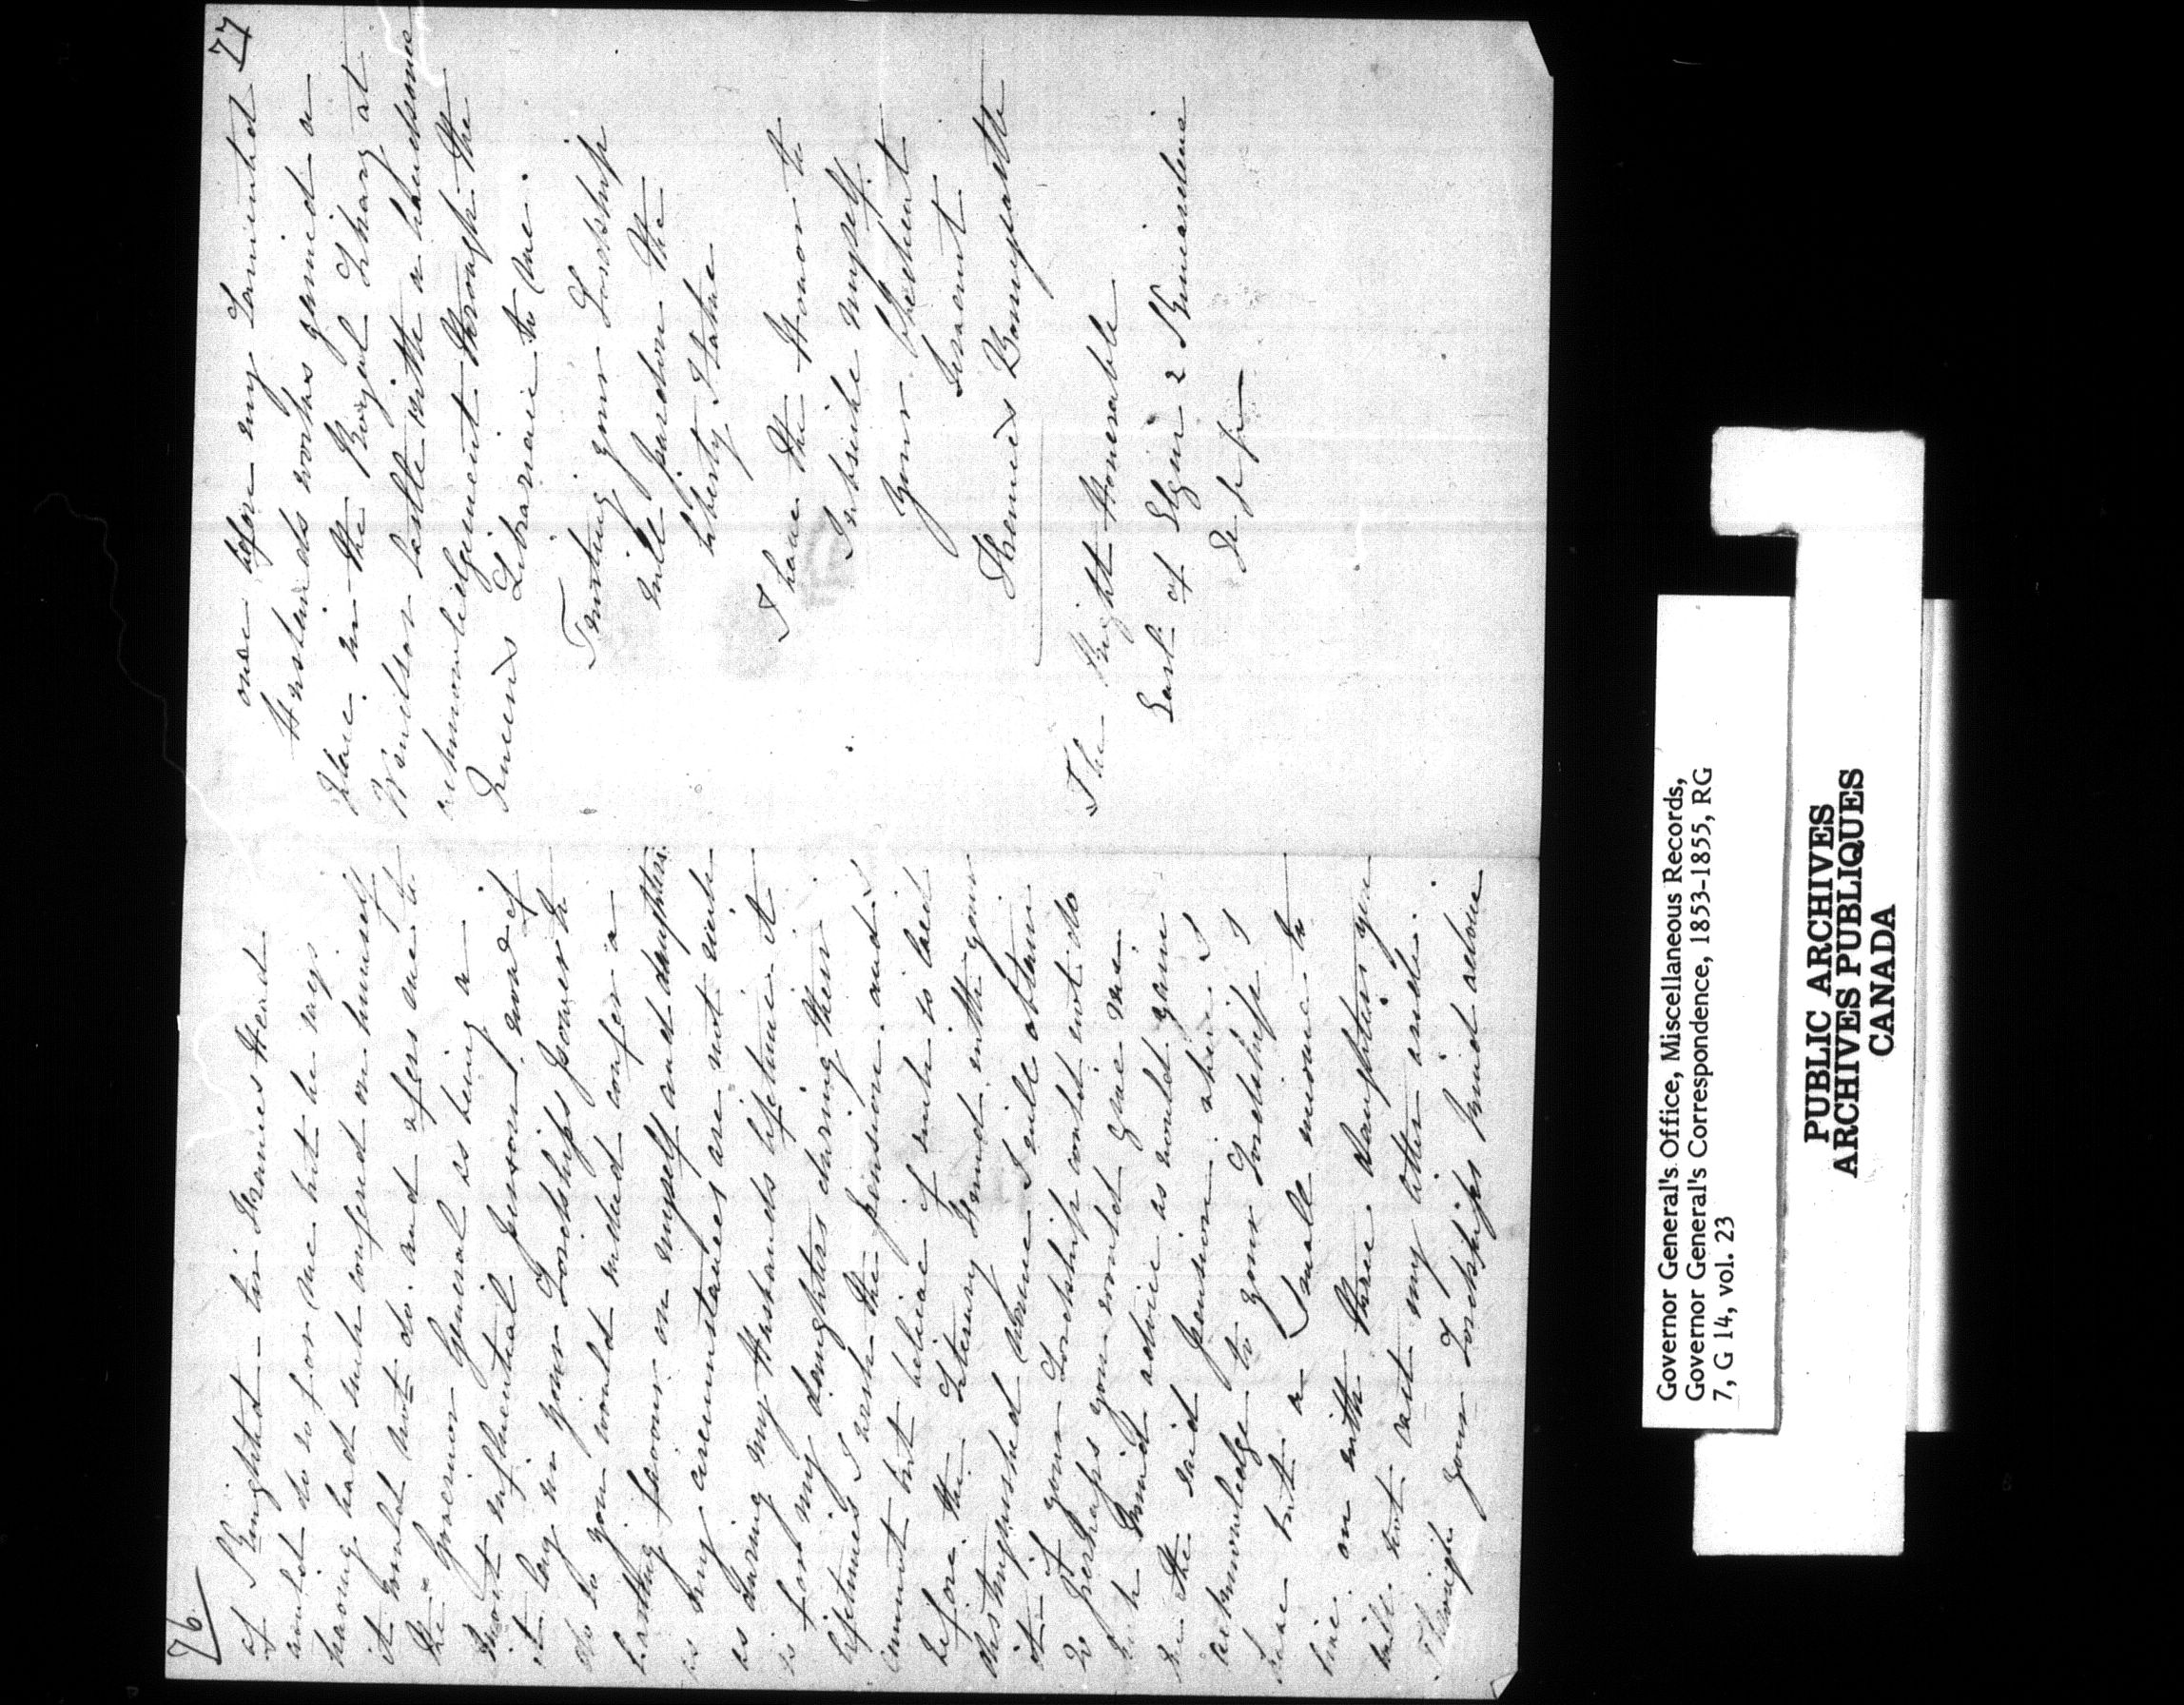 76
of Knighted – Sir Francis Head
would do so for me but he says
having had such confered on himself
it would not do. and refers me to
the Governor General as being a
most influential person, and if
it lay in your Lordships power to
do so you would indeed confer a
lasting favour on myself and daughters.
as my circumstances are not such
as during my Husbands lifetime it
is for my daughters during their
lifetimes I wish the pension and I
cannot but believe if such is laid
before the Literary Fund with your
distinguished name I will obtain
it. If your Lordship could not do
so perhaps you would give me
such kind advice as would gain
me the said pension. also I
acknowledge to your Lordship I
have but a Small income to
live on with three daughters you
will not cast my letter aside.
Through your Lordships kind advice
77
one before my Lamented
Husbands works gained a
place in the Royal Library at
Windsor Castle with a handsome
acknowledgement through the
Queens Librarie to me.
Trusting your Lordship
will pardon the
liberty I take
I have the Honor to
Subscribe myself
Your obedient
Servant
Frances Bonnycastle
The Right Honerable
Earl of Elgin & Kincardine
Governor General's Office, Miscellaneous Records,
Governor General's Correspondence, 1853-1855, RG
7, G 14, vol. 23
PUBLIC ARCHIVES
ARCHIVES PUBLIQUES
CANADA